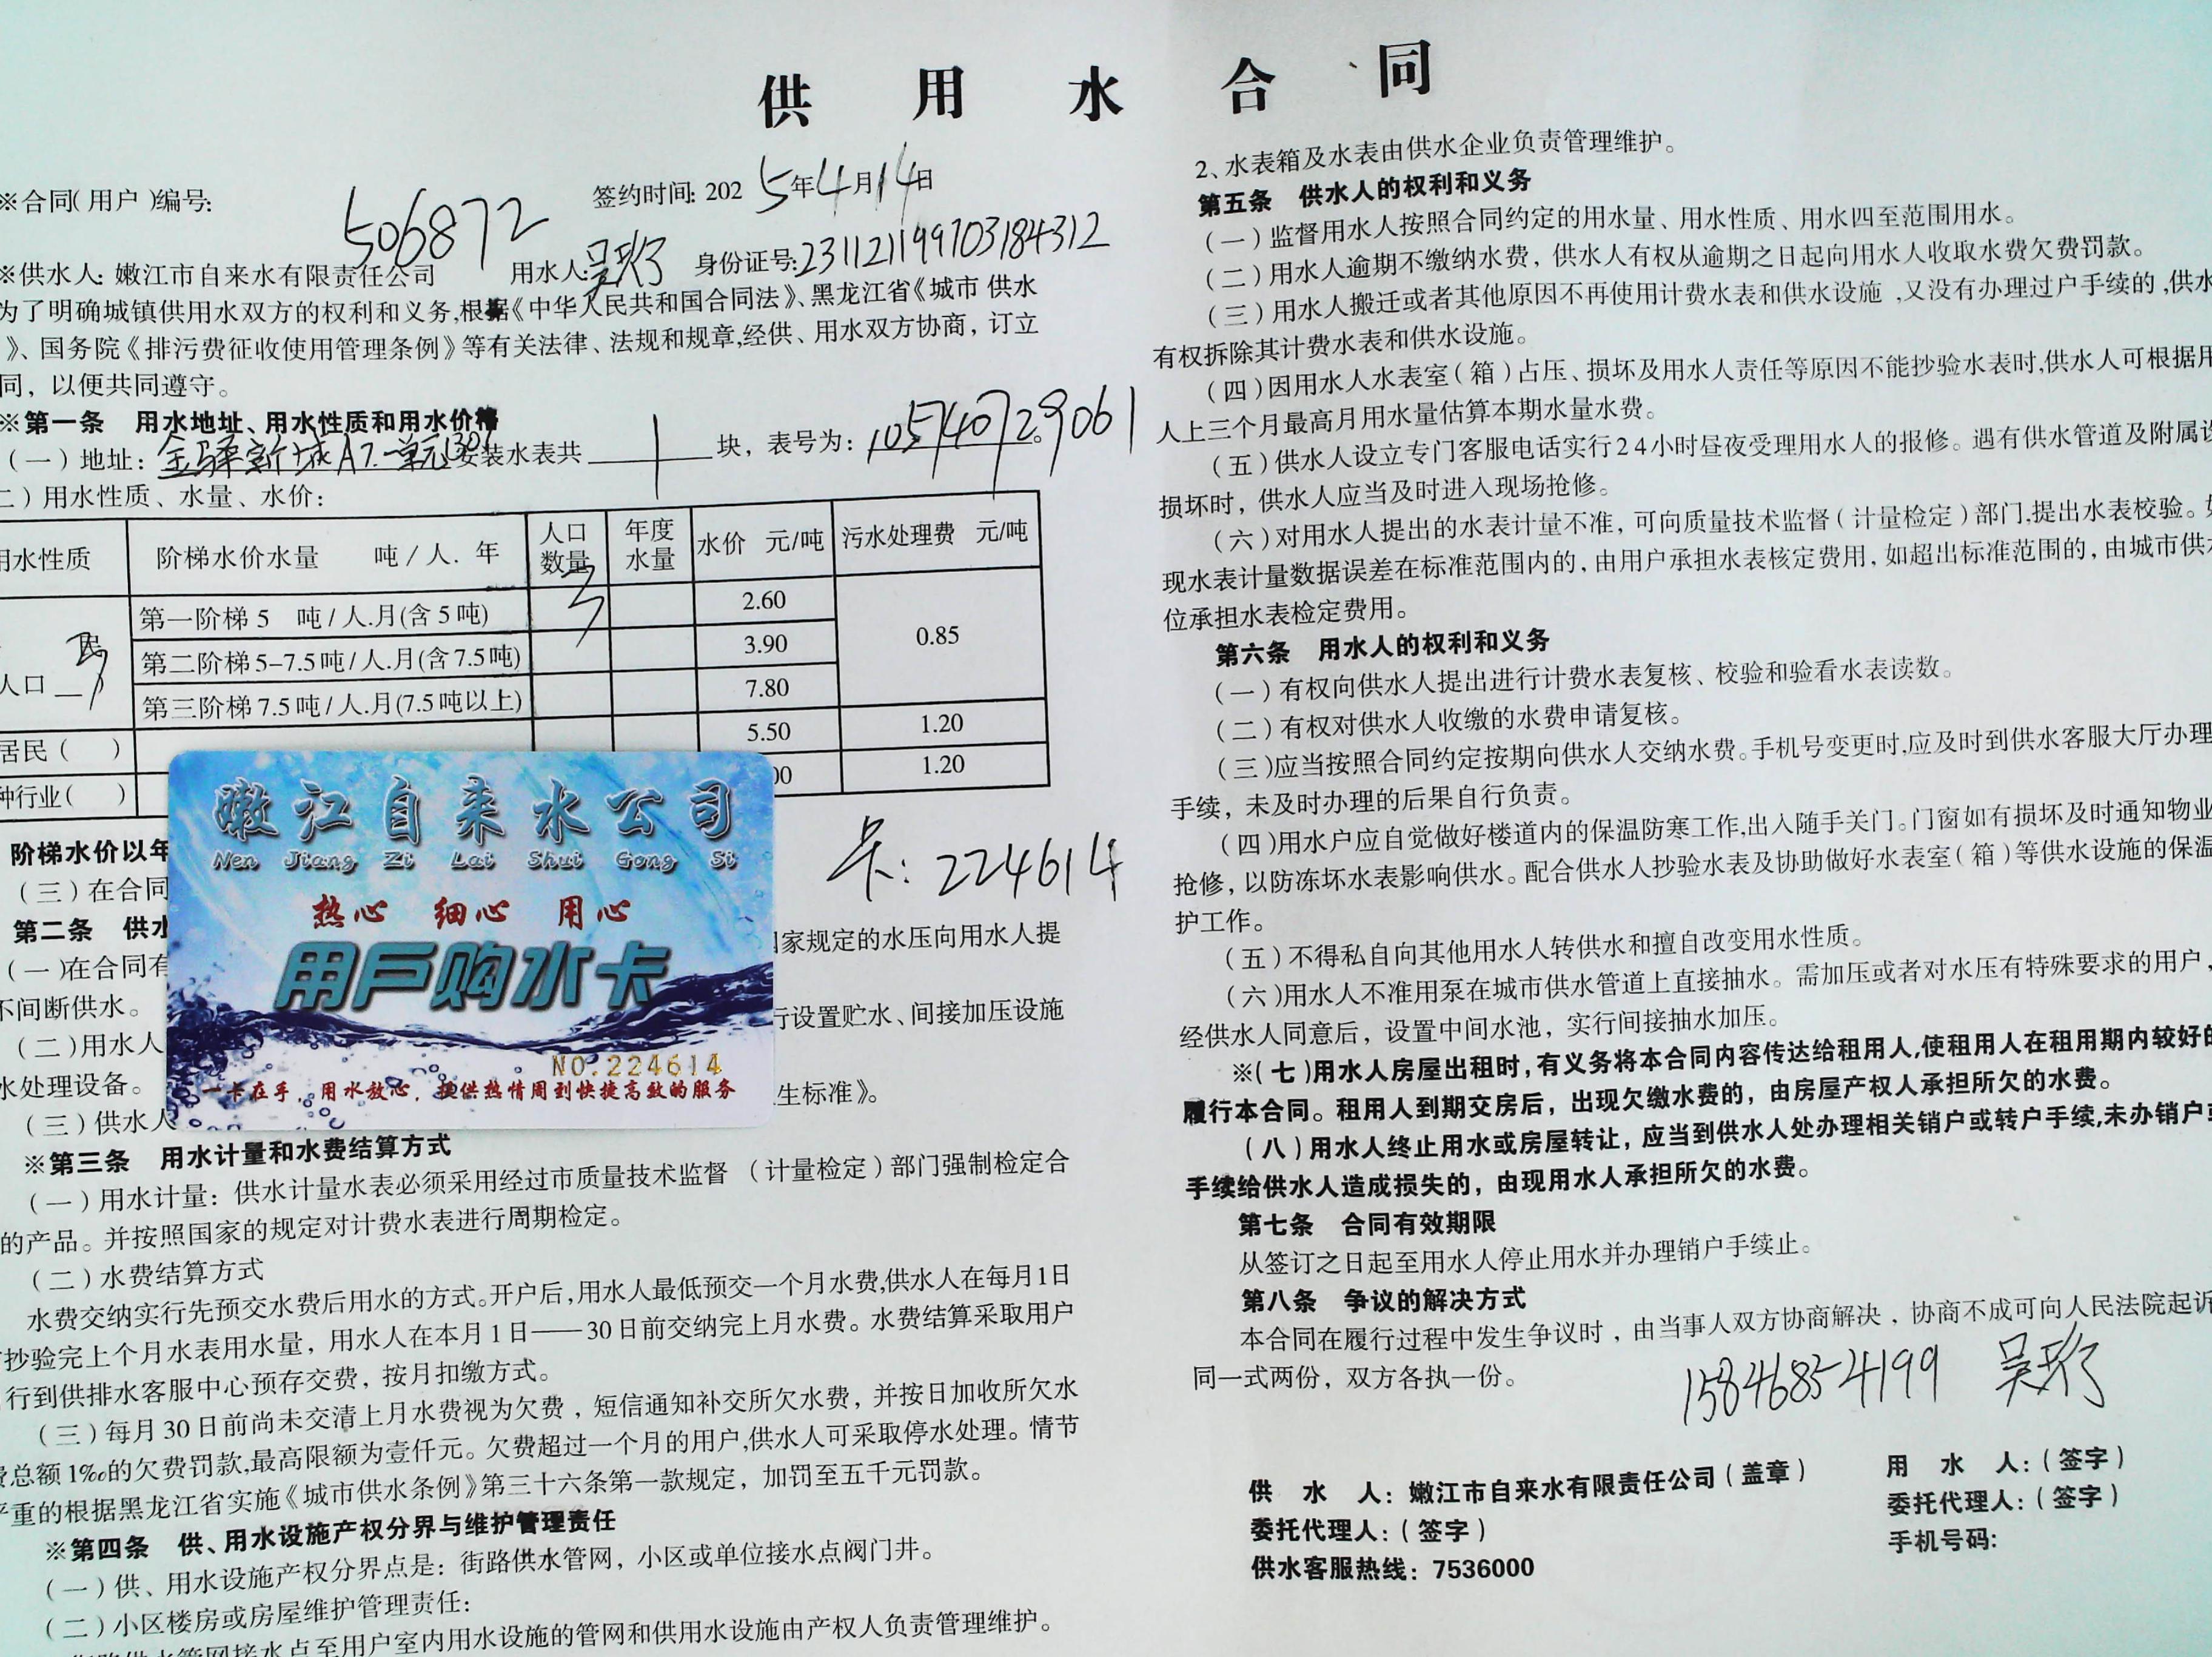 供 用 水 合 同
※合同(用户)编号: 506872 签约时间: 2025年4月14日
※供水人: 嫩江市自来水有限责任公司 用水人: 吴 身份证号: 231121199703184312
为了明确城镇供用水双方的权利和义务,根据《中华人民共和国合同法》、黑龙江省《城市 供水
》、国务院《排污费征收使用管理条例》等有关法律、法规和规章,经供、用水双方协商，订立
同，以便共同遵守。
※第一条 用水地址、用水性质和用水价格
(一)地址: 金驿新城A7.一单元1301 安装水表共 1 块，表号为: 105740729061。
二)用水性质、水量、水价:
用水性质 阶梯水价水量 吨/人.年 人口数量 年度水量 水价 元/吨 污水处理费 元/吨
民 第一阶梯 5 吨/人.月(含5吨) 3 2.60 0.85
人口 3 第二阶梯5-7.5吨/人.月(含7.5吨) 3.90
第三阶梯7.5吨/人.月(7.5吨以上) 7.80
居民( ) 5.50 1.20
种行业( ) 00 1.20
嫩江自来水公司
Nen Jiang Zi Lai Shui Gong Si
热心 细心 用心
用户购水卡
NO.224614
一卡在手，用水放心，提供热情周到快捷高效的服务
卡: 224614
阶梯水价以年
(三)在合同
第二条 供水
(一)在合同有 国家规定的水压向用水人提
不间断供水。
(二)用水人 行设置贮水、间接加压设施
水处理设备。
(三)供水人 生标准》。
※第三条 用水计量和水费结算方式
(一)用水计量: 供水计量水表必须采用经过市质量技术监督 (计量检定)部门强制检定合
的产品。并按照国家的规定对计费水表进行周期检定。
(二)水费结算方式
水费交纳实行先预交水费后用水的方式。开户后,用水人最低预交一个月水费,供水人在每月1日
抄验完上个月水表用水量，用水人在本月1日——30日前交纳完上月水费。水费结算采取用户
行到供排水客服中心预存交费，按月扣缴方式。
(三)每月30日前尚未交清上月水费视为欠费，短信通知补交所欠水费，并按日加收所欠水
费总额1‰的欠费罚款,最高限额为壹仟元。欠费超过一个月的用户,供水人可采取停水处理。情节
严重的根据黑龙江省实施《城市供水条例》第三十六条第一款规定，加罚至五千元罚款。
※第四条 供、用水设施产权分界与维护管理责任
(一)供、用水设施产权分界点是: 街路供水管网，小区或单位接水点阀门井。
(二)小区楼房或房屋维护管理责任:
供水管网接水点至用户室内用水设施的管网和供用水设施由产权人负责管理维护。
2、水表箱及水表由供水企业负责管理维护。
第五条 供水人的权利和义务
(一)监督用水人按照合同约定的用水量、用水性质、用水四至范围用水。
(二)用水人逾期不缴纳水费，供水人有权从逾期之日起向用水人收取水费欠费罚款。
(三)用水人搬迁或者其他原因不再使用计费水表和供水设施,又没有办理过户手续的,供水
有权拆除其计费水表和供水设施。
(四)因用水人水表室(箱)占压、损坏及用水人责任等原因不能抄验水表时,供水人可根据用
人上三个月最高月用水量估算本期水量水费。
(五)供水人设立专门客服电话实行24小时昼夜受理用水人的报修。遇有供水管道及附属设
损坏时，供水人应当及时进入现场抢修。
(六)对用水人提出的水表计量不准，可向质量技术监督(计量检定)部门,提出水表校验。如
现水表计量数据误差在标准范围内的，由用户承担水表核定费用，如超出标准范围的，由城市供水
位承担水表检定费用。
第六条 用水人的权利和义务
(一)有权向供水人提出进行计费水表复核、校验和验看水表读数。
(二)有权对供水人收缴的水费申请复核。
(三)应当按照合同约定按期向供水人交纳水费。手机号变更时,应及时到供水客服大厅办理
手续，未及时办理的后果自行负责。
(四)用水户应自觉做好楼道内的保温防寒工作,出入随手关门。门窗如有损坏及时通知物业
抢修，以防冻坏水表影响供水。配合供水人抄验水表及协助做好水表室(箱)等供水设施的保温
护工作。
(五)不得私自向其他用水人转供水和擅自改变用水性质。
(六)用水人不准用泵在城市供水管道上直接抽水。需加压或者对水压有特殊要求的用户，
经供水人同意后，设置中间水池，实行间接抽水加压。
※(七)用水人房屋出租时,有义务将本合同内容传达给租用人,使租用人在租用期内较好的
履行本合同。租用人到期交房后，出现欠缴水费的，由房屋产权人承担所欠的水费。
(八)用水人终止用水或房屋转让，应当到供水人处办理相关销户或转户手续,未办销户或
手续给供水人造成损失的，由现用水人承担所欠的水费。
第七条 合同有效期限
从签订之日起至用水人停止用水并办理销户手续止。
第八条 争议的解决方式
本合同在履行过程中发生争议时，由当事人双方协商解决，协商不成可向人民法院起诉
同一式两份，双方各执一份。
15846854199 吴
供 水 人: 嫩江市自来水有限责任公司(盖章) 用 水 人:(签字)
委托代理人:(签字) 委托代理人:(签字)
供水客服热线: 7536000 手机号码: